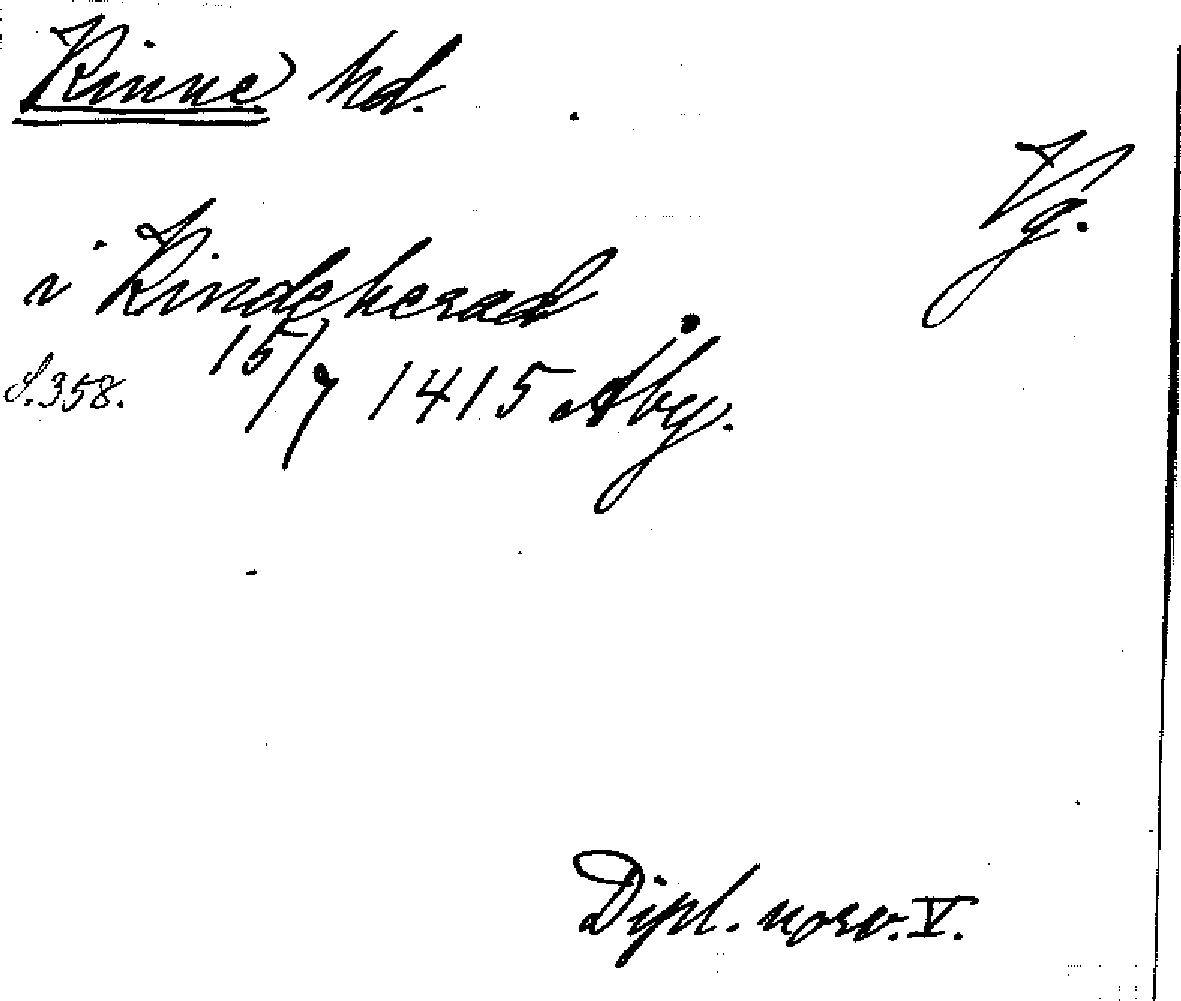 Kinne hd.
Vg.
i Kindeherad
S. 358. 15/7 1415 Åby.
Dipl. norv. V.